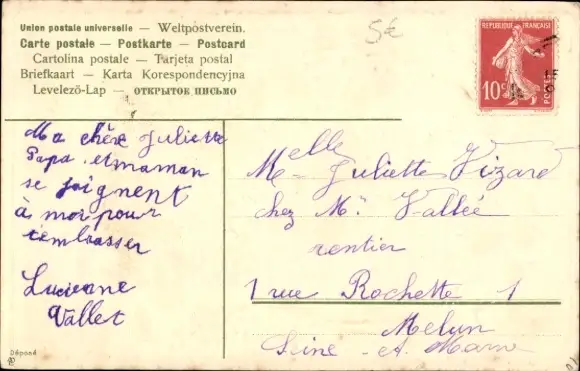 Union postale universelle — Weltpostverein.
Carte postale — Postkarte — Postcard
Cartolina postale — Tarjeta postal
Briefkaart — Karta Korespondencyjna
Levelező-Lap — ОТКРЫТОЕ ПИСЬМО
5€
REPUBLIQUE FRANÇAISE
10c
POSTES
Ma chère Juliette
Papa et maman
se joignent
à moi pour
t'embrasser
Lucienne
Vallet
Melle Juliette Vizard
chez Mr Vallée
rentier
1 rue Rochette 1
Melun
Seine-et-Marne
Déposé